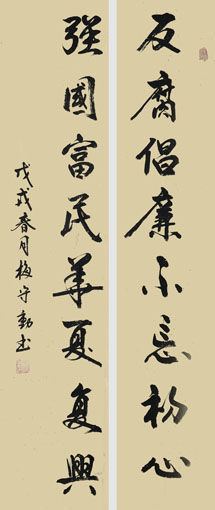 反腐倡廉不忘初心
强國富民華夏复興
戊戌春月梅守勤书